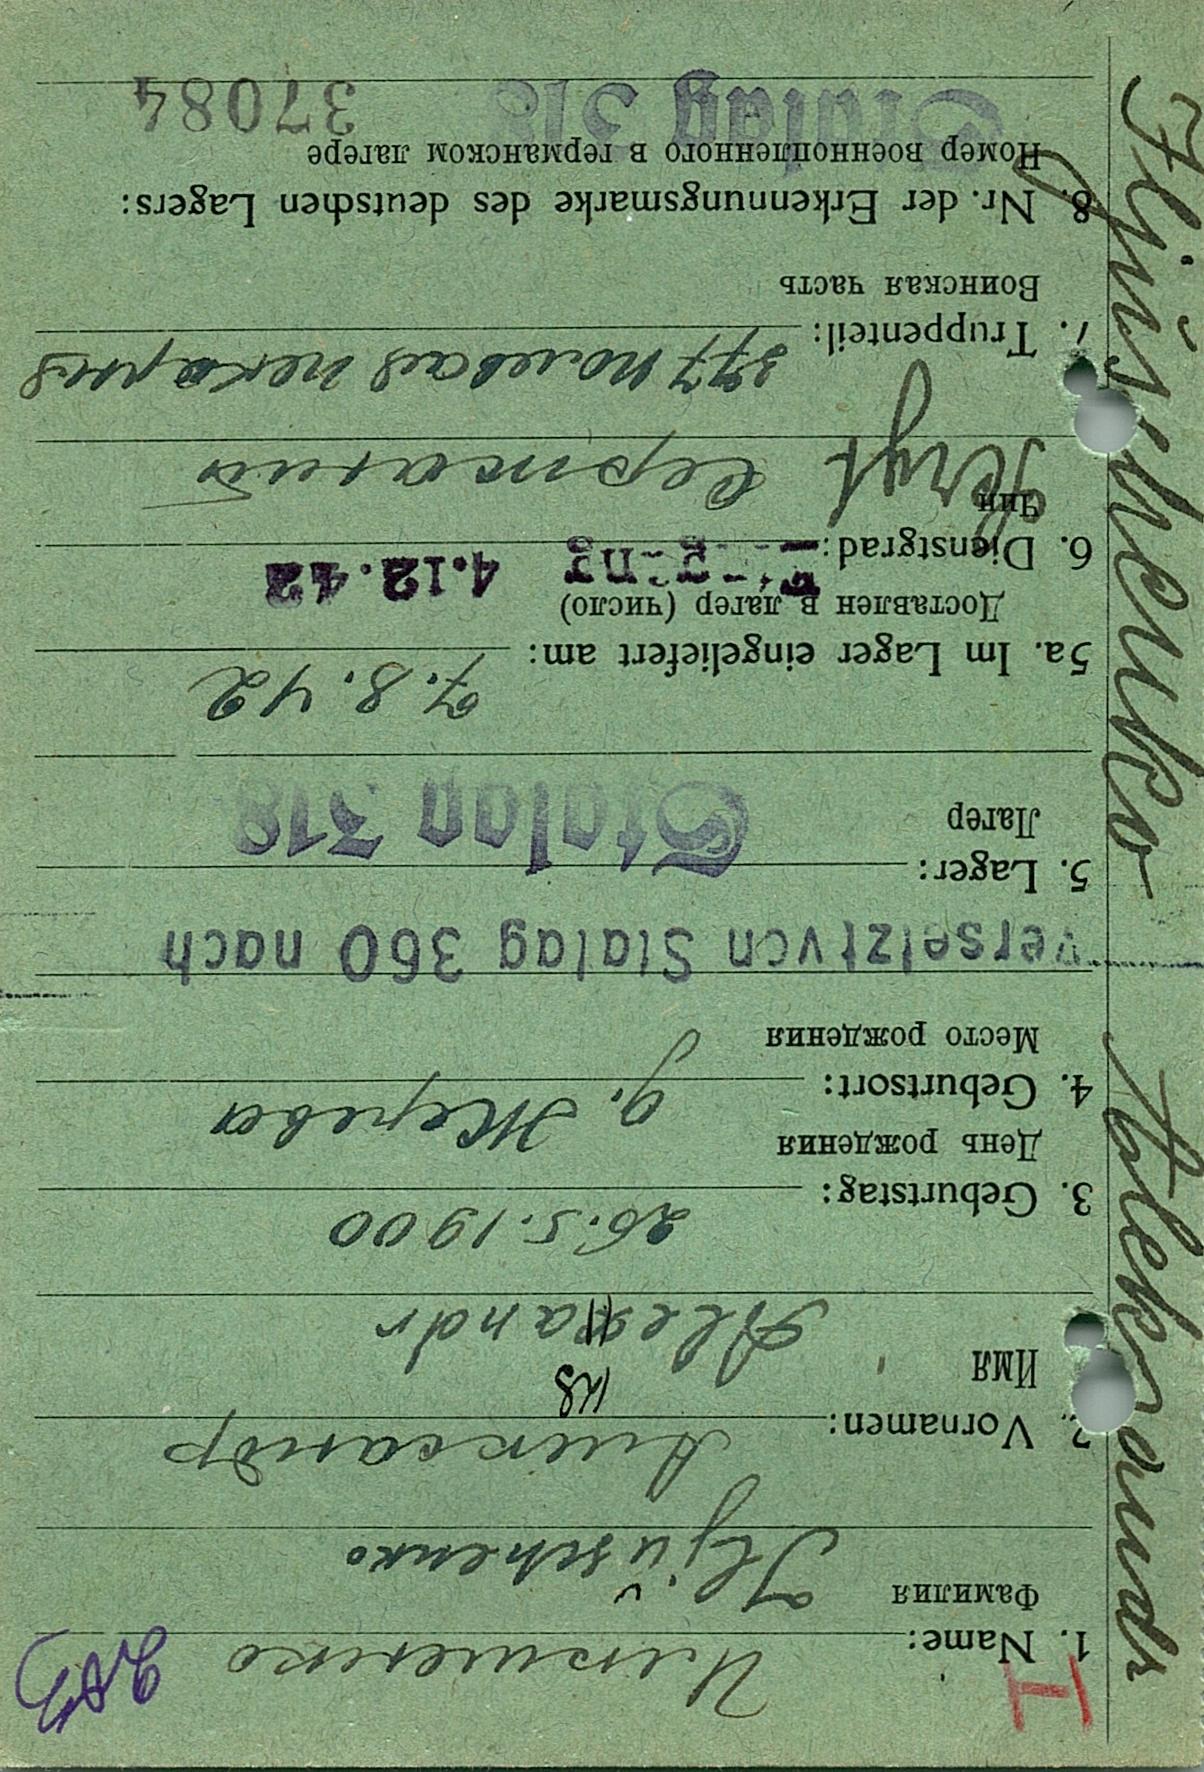 Iljuschenko Aleksandr
H
1. Name: Илюшенко
Фамилия
Iljuschenko
2. Vornamen: Александр
ks
Имя
Alexandr
26.5.1900
3. Geburtstag:
День рождения
д. Жерева
4. Geburtsort:
Место рождения
versetzt von Stalag 360 nach
5. Lager:
Лагер
Stalag 318
7.8.42
5a. Im Lager eingeliefert am:
Доставлен в лагер (число)
Eingang 4.12.42
6. Dienstgrad:
Чин
Sergt Сержант
377 полевая пекарня
7. Truppenteil:
Воинская часть
8. Nr. der Erkennungsmarke des deutschen Lagers:
Номер военнопленного в германском лагере
Stalag 318 37084